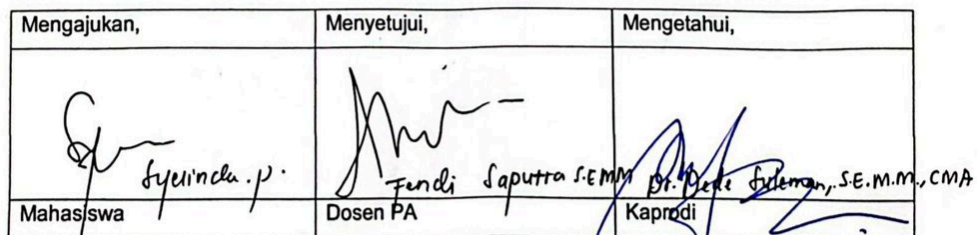 Mengajukan, Menyetujui, Mengetahui,
Syerinda.p. Fendi Saputra S.E MM Dr. Dede Suleman, S.E.M.M., CMA
Mahasiswa Dosen PA Kaprodi